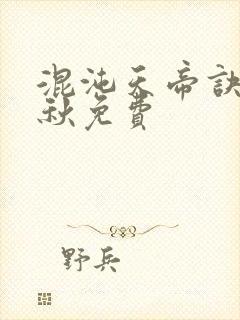 混沌天帝訣
秋免費
野兵